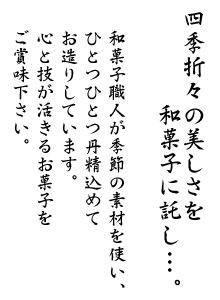 四季折々の美しさを
和菓子に託し…。
和菓子職人が季節の素材を使い、
ひとつひとつ丹精込めて
お造りしています。
心と技が活きるお菓子を
ご賞味下さい。